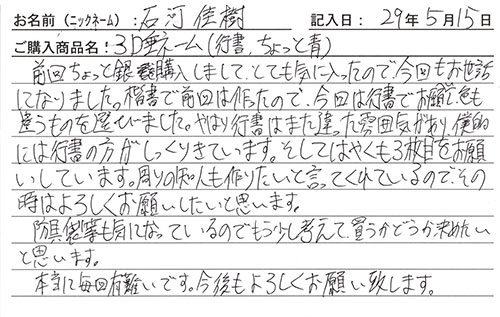 お名前(ニックネーム): 石河 佳樹 記入日: 29年5月15日
ご購入商品名: 3D垂ネーム(行書、ちょっと青)
前回ちょっと銀を購入しまして、とても気に入ったので、今回もお世話
になりました。楷書で前回は作たので、今回は行書でお願で、色も
違うものを選いました。やはり行書はまた違った雰囲気があり、僕的
には行書の方がしっくりきています。そしてはやくも3枚目をお願
いしています。周りの知人も作りたいと言ってくれているので、その
時はよろしくお願いしたいと思います。
防具袋等も気になっているのでもう少し考えて、買うかどうか決めたい
と思います。
本当に毎回有難いです。今後もよろしくお願い致します。